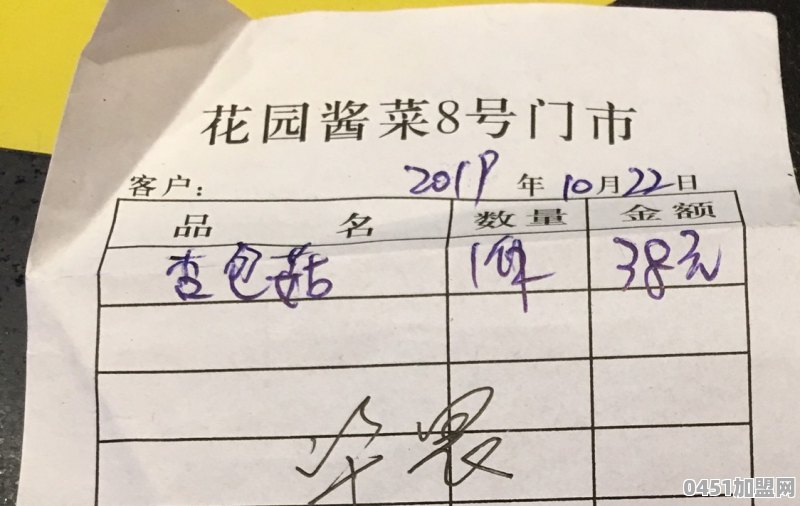 花园酱菜8号门市
客户： 2019年10月22日
品 名 数量 金额
杏包菇 1件 38元
0451加盟网